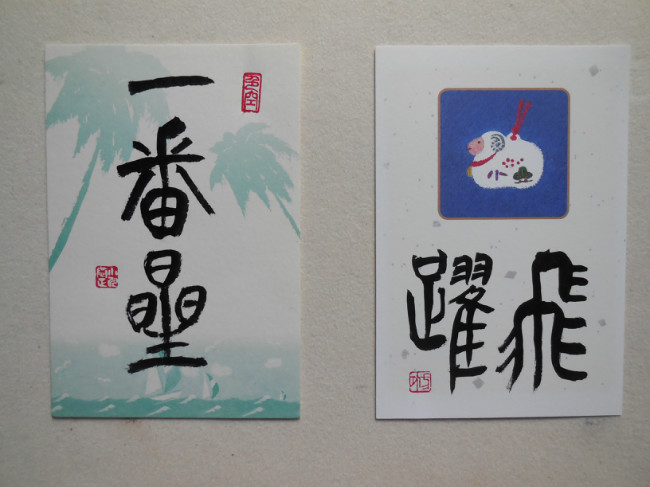 一番星
飛躍